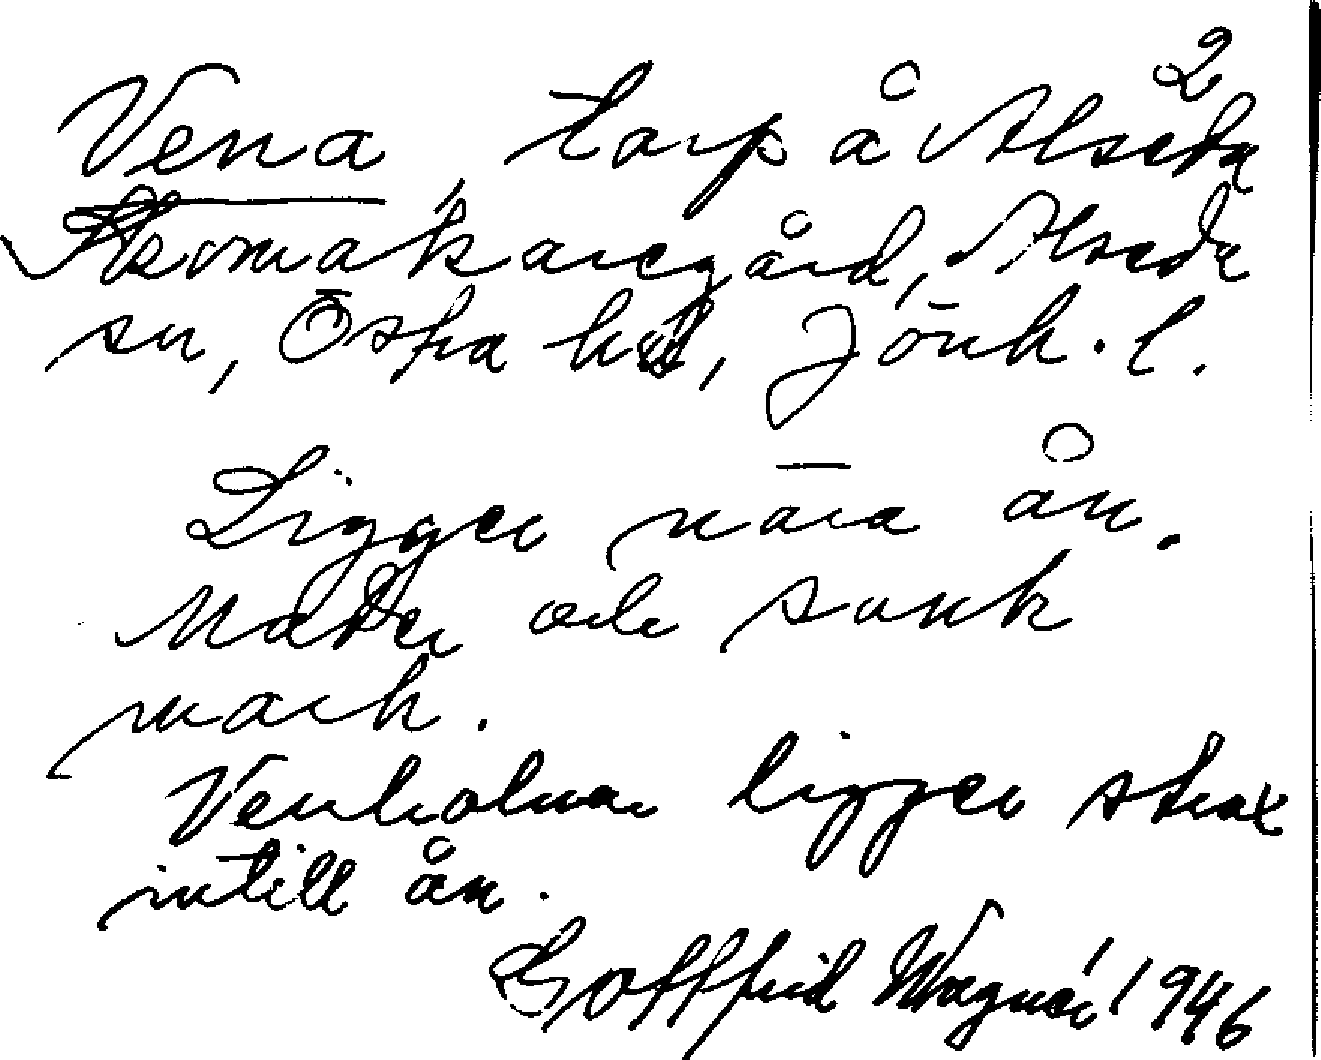 2
Vena, torp å Alseda
Skomakaregård, Alseda
sn, Östra hd, Jönk. l.
Ligger nära ån.
Mader och sank
mark.
Venholmar ligger strax
intill ån.
Gottfrid Wagnér 1946